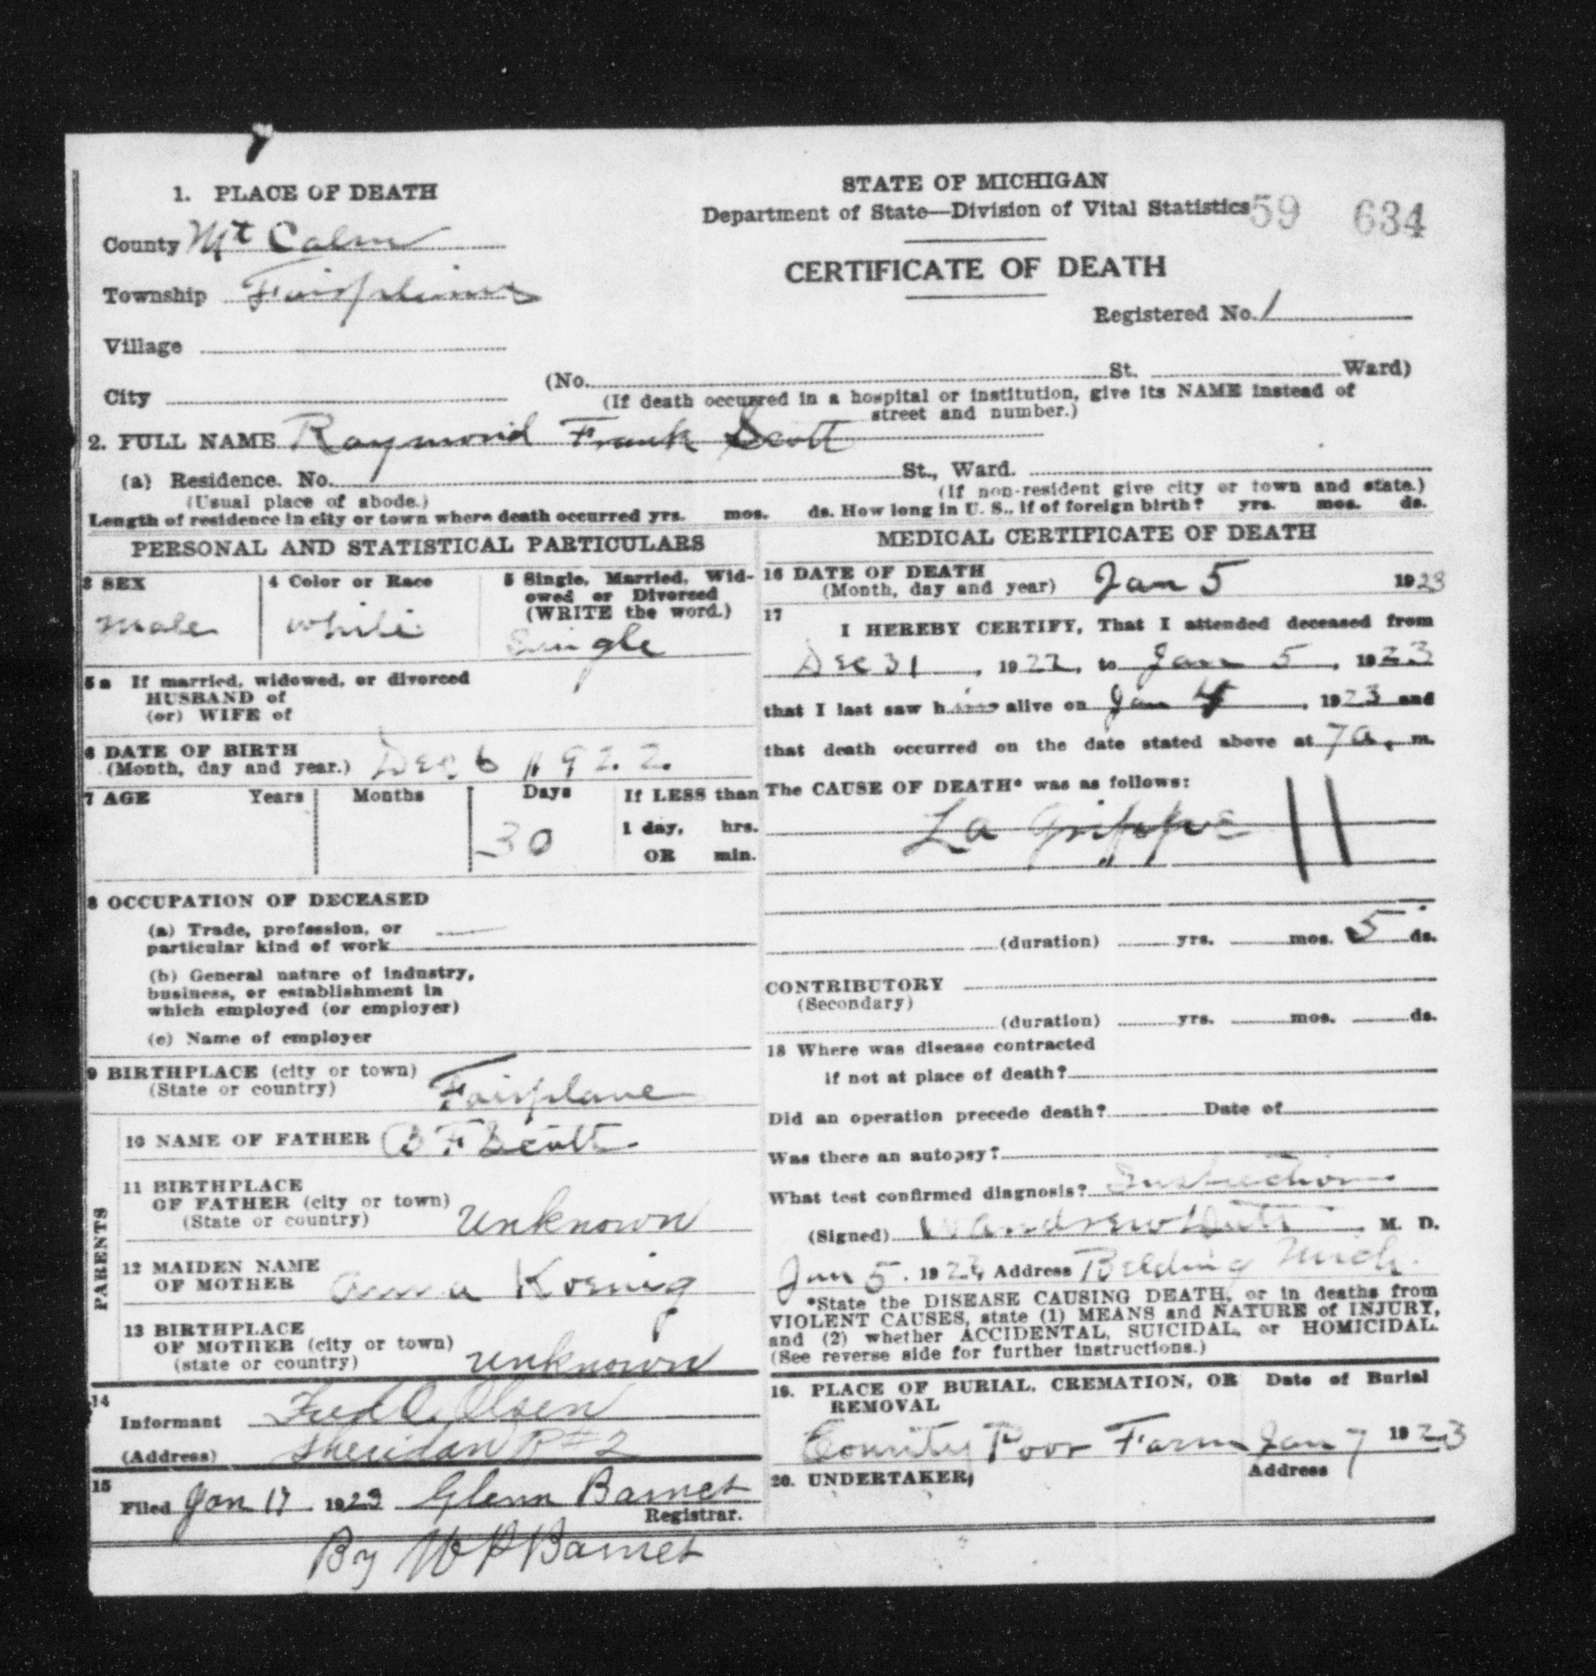 1. PLACE OF DEATH
County Mt Calm
Township Fairplains
Village
City
STATE OF MICHIGAN
Department of State—Division of Vital Statistics
59 634
CERTIFICATE OF DEATH
Registered No. 1
(No. St. Ward)
(If death occurred in a hospital or institution, give its NAME instead of
street and number.)
2. FULL NAME Raymond Frank Scott
(a) Residence. No. St., Ward.
(Usual place of abode.)
(If non-resident give city or town and state.)
Length of residence in city or town where death occurred yrs. mos. ds. How long in U. S., if of foreign birth? yrs. mos. ds.
PERSONAL AND STATISTICAL PARTICULARS
3 SEX
Male
4 Color or Race
White
5 Single, Married, Wid-
owed or Divorced
(WRITE the word.)
Single
5a If married, widowed, or divorced
HUSBAND of
(or) WIFE of
6 DATE OF BIRTH
(Month, day and year.) Dec 6 1922.
7 AGE Years Months Days
30
If LESS than
1 day, hrs.
OR min.
8 OCCUPATION OF DECEASED
(a) Trade, profession, or
particular kind of work
(b) General nature of industry,
business, or establishment in
which employed (or employer)
(c) Name of employer
9 BIRTHPLACE (city or town)
(State or country) Fairplane
PARENTS
10 NAME OF FATHER B F Scott
11 BIRTHPLACE
OF FATHER (city or town)
(State or country) Unknown
12 MAIDEN NAME
OF MOTHER Anna Koenig
13 BIRTHPLACE
OF MOTHER (city or town)
(state or country) unknown
14
Informant Fred C. Olsen
(Address) Sheridan R#2
15
Filed Jan 17 1923 Glenn Barnet
Registrar.
By W P Barnet
MEDICAL CERTIFICATE OF DEATH
16 DATE OF DEATH
(Month, day and year) Jan 5 1923
17
I HEREBY CERTIFY, That I attended deceased from
Dec 31, 1922, to Jan 5, 1923
that I last saw him alive on Jan 4, 1923 and
that death occurred on the date stated above at 7 a. m.
The CAUSE OF DEATH* was as follows:
La Grippe 11
(duration) yrs. mos. 5 ds.
CONTRIBUTORY
(Secondary)
(duration) yrs. mos. ds.
18 Where was disease contracted
if not at place of death?
Did an operation precede death? Date of
Was there an autopsy?
What test confirmed diagnosis?
(Signed) M. D.
Jan 5, 1923 Address Belding Mich.
*State the DISEASE CAUSING DEATH, or in deaths from
VIOLENT CAUSES, state (1) MEANS and NATURE of INJURY,
and (2) whether ACCIDENTAL, SUICIDAL, or HOMICIDAL.
(See reverse side for further instructions.)
19. PLACE OF BURIAL, CREMATION, OR
REMOVAL
County Poor Farm
Date of Burial
Jan 7 1923
20. UNDERTAKER,
Address